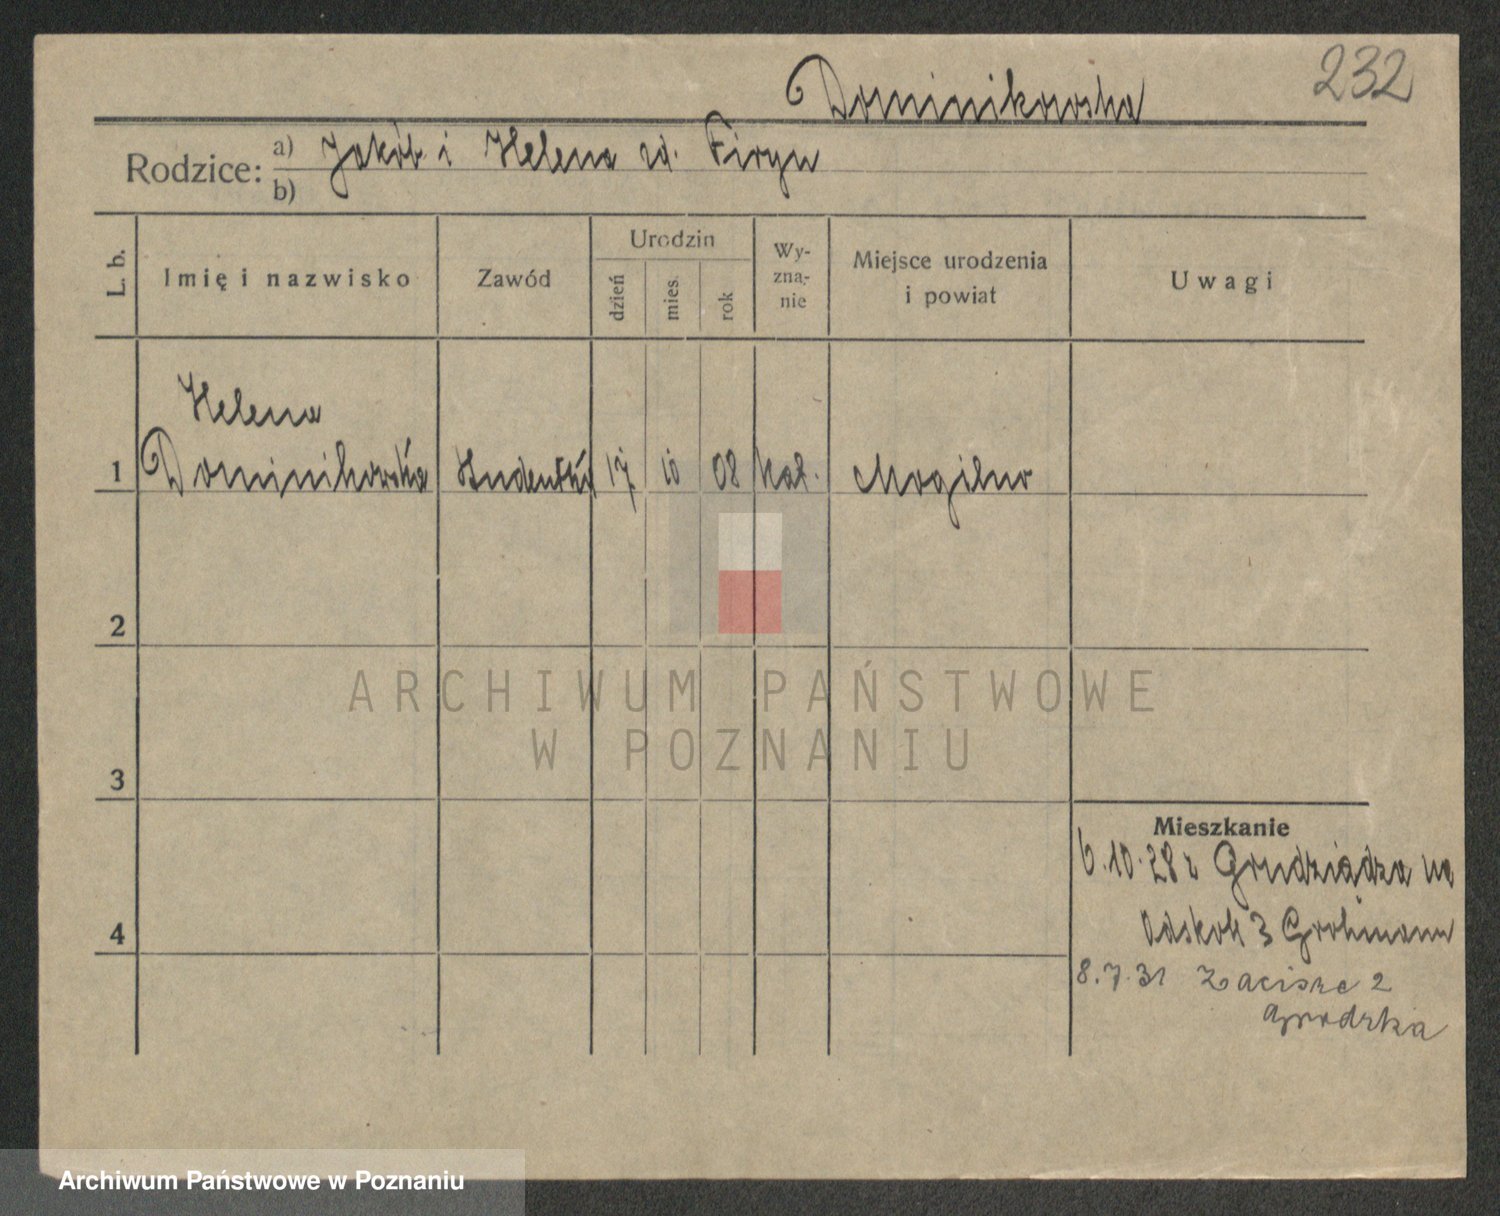 232
Dominikowska
Rodzice: a) Jakób i Helena zd. Firyn
b)
L. b.
Imię i nazwisko
Zawód
Urodzin
dzień
mies.
rok
Wy-
zna-
nie
Miejsce urodzenia
i powiat
Uwagi
Helena
1 Dominikowska Studentka 17 10 08 kat. Mogilno
2
3
4
Mieszkanie
6.10.28 z Grudziądza na
3 Grohmann
8.7.31 Zacisze 2
Grodzka
ARCHIWUM PAŃSTWOWE
W POZNANIU
Archiwum Państwowe w Poznaniu